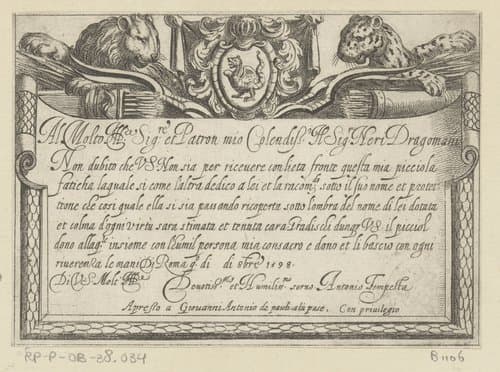 Al Molto Ill.re Sig.re et Patron mio Colendiss.o Il Sig. Neri Dragomani
Non dubito che V.S. Non sia per ricevere con lieta fronte questa mia picciola
faticha laquale si come l'altra dedico a lei et la racom.do sotto il suo nome et protet-
tione che cosi quale ella si sia passando ricoperta sotto l'ombra del nome di lei dotata
et colma d'ogni virtu sara stimata et tenuta cara Gradischi dunq. V.S. il picciol
dono allaq.le insieme con l'humil persona mia consacro e dono et li bascio con ogni
riverenza le mani Di Roma q.o di di 8bre 1598.
Di V.S. Molt' Ill.re
Devotiss.mo et Humiliss.o servo Antonio Tempesta
Apresso a Giovanni Antonio de pauli alla pace. Con privilegio
RP-P-OB-38.034
B 1106